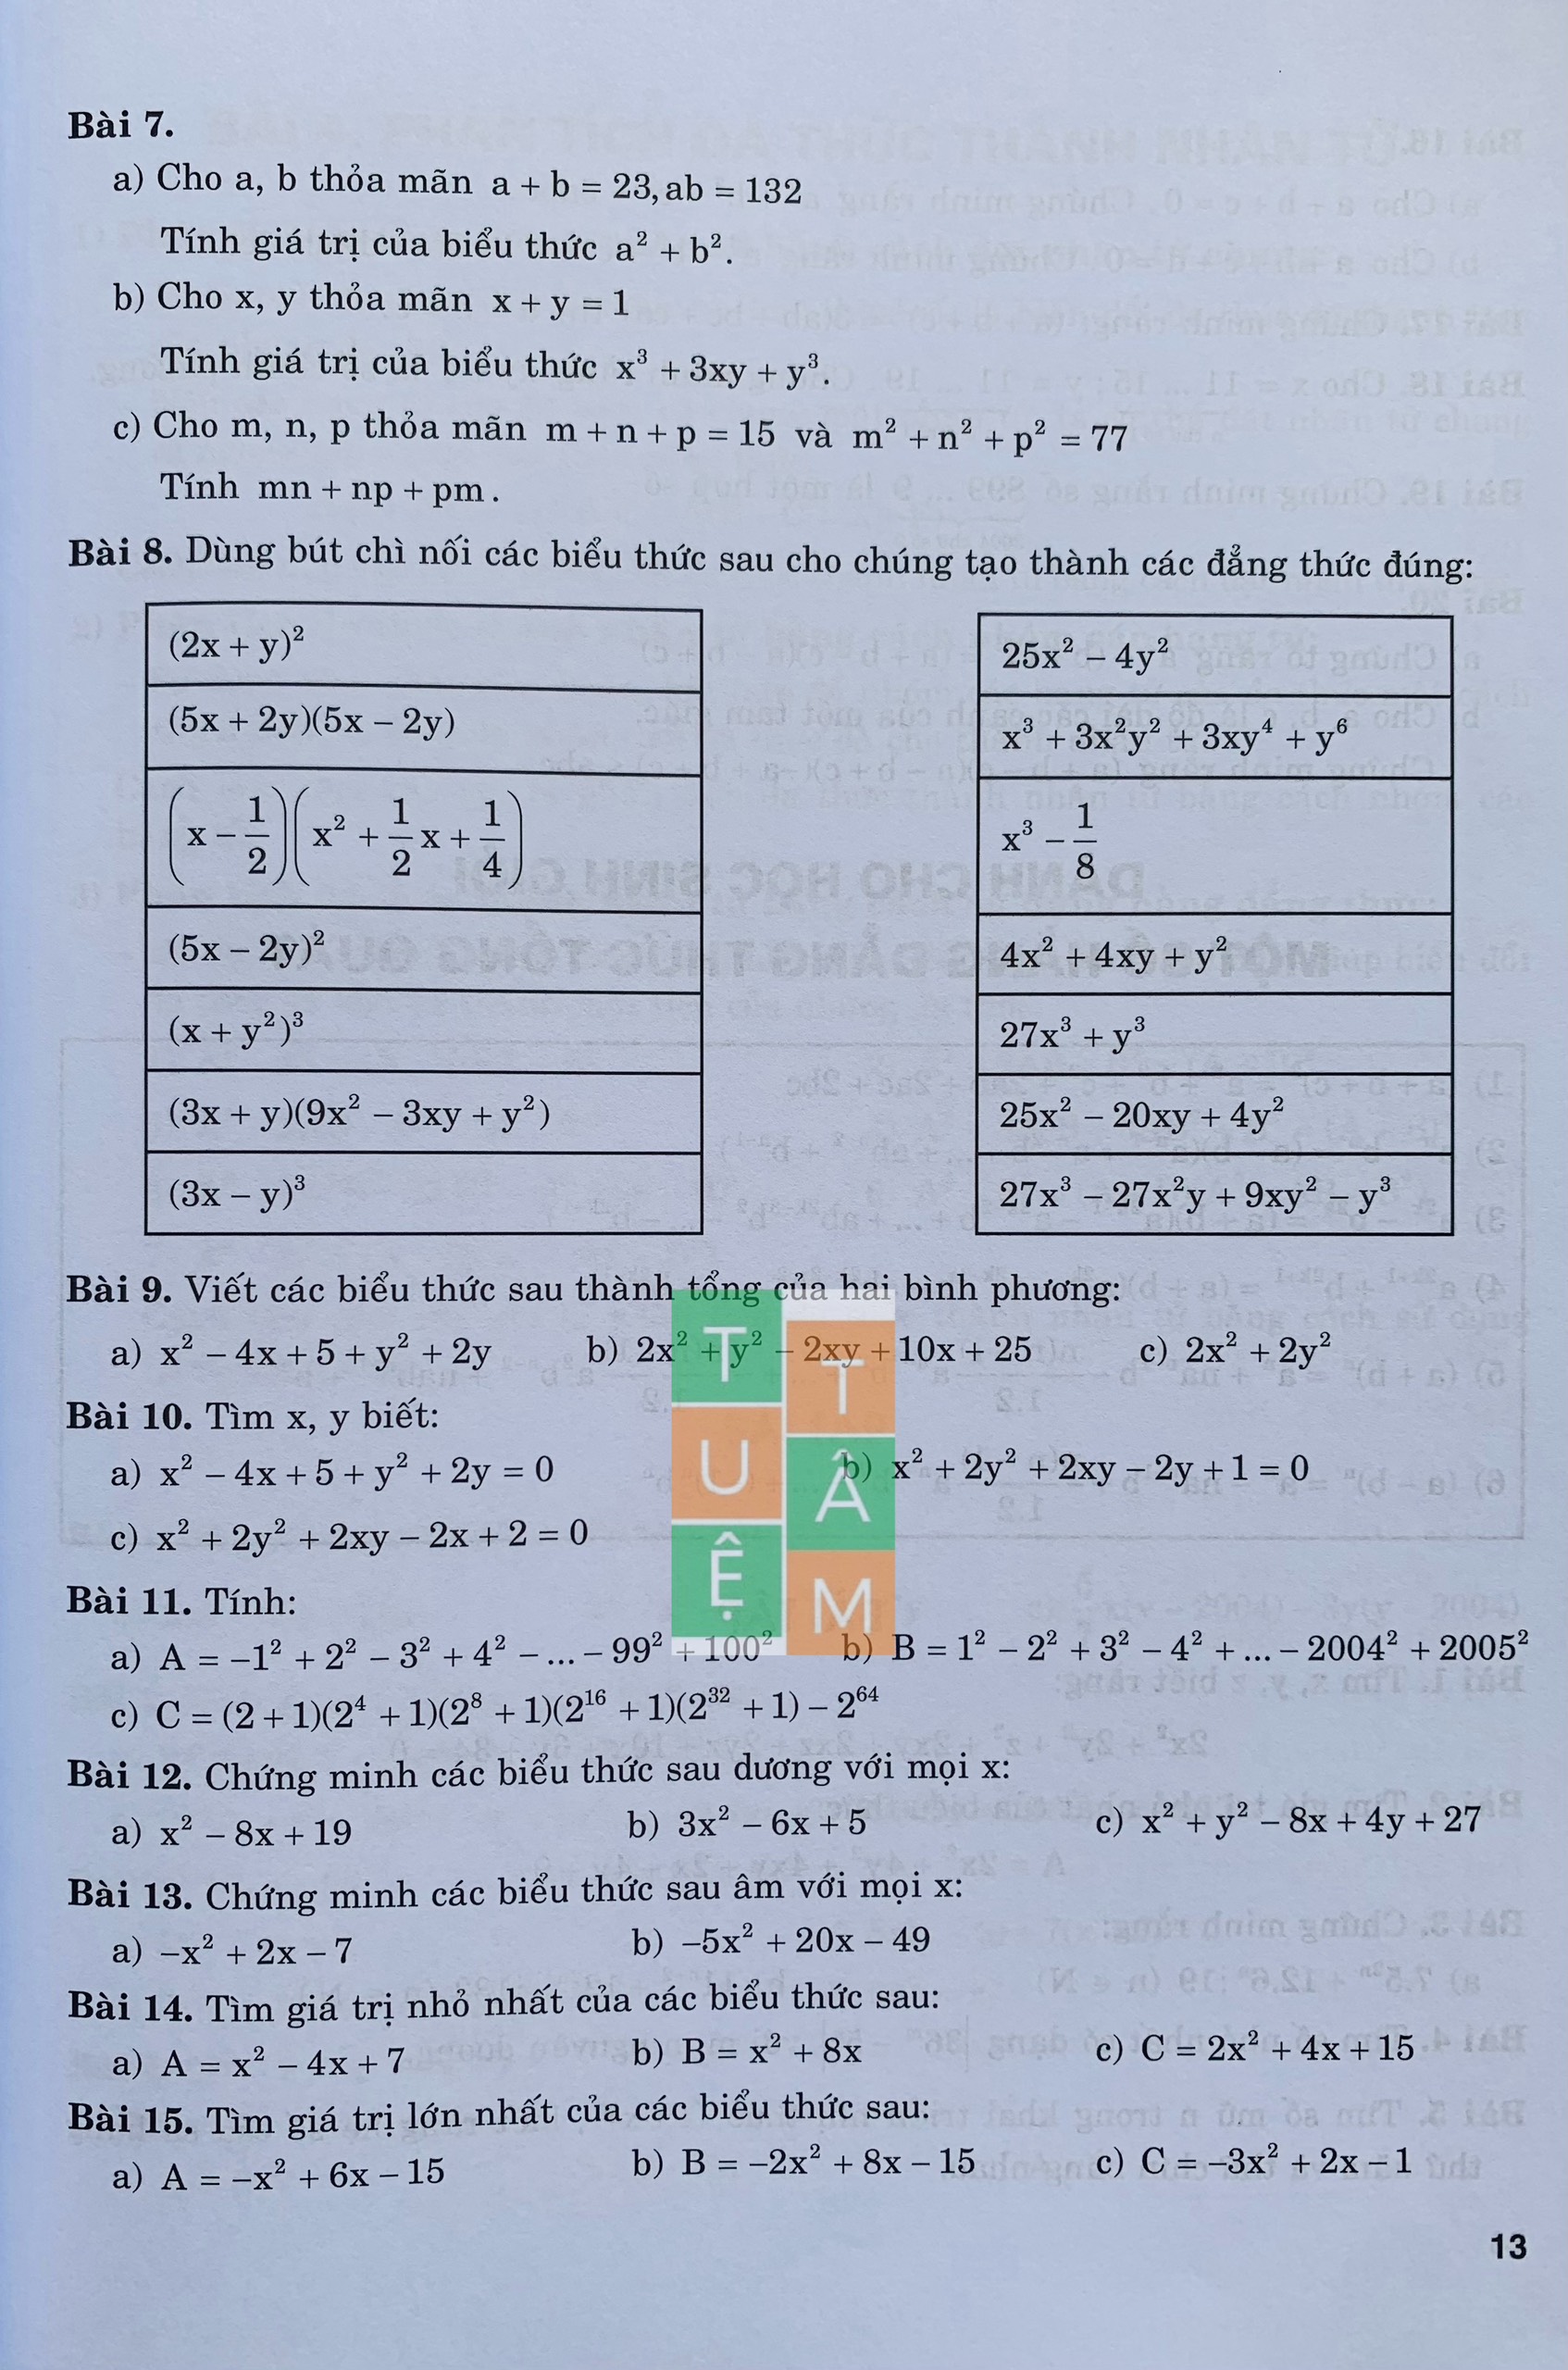 Bài 7.
a) Cho a, b thỏa mãn a + b = 23, ab = 132
Tính giá trị của biểu thức a² + b².
b) Cho x, y thỏa mãn x + y = 1
Tính giá trị của biểu thức x³ + 3xy + y³.
c) Cho m, n, p thỏa mãn m + n + p = 15 và m² + n² + p² = 77
Tính mn + np + pm.
Bài 8. Dùng bút chì nối các biểu thức sau cho chúng tạo thành các đẳng thức đúng:
(2x + y)²
(5x + 2y)(5x – 2y)
(x – 1/2)(x² + 1/2 x + 1/4)
(5x – 2y)²
(x + y²)³
(3x + y)(9x² – 3xy + y²)
(3x – y)³
25x² – 4y²
x³ + 3x²y² + 3xy⁴ + y⁶
x³ – 1/8
4x² + 4xy + y²
27x³ + y³
25x² – 20xy + 4y²
27x³ – 27x²y + 9xy² – y³
Bài 9. Viết các biểu thức sau thành tổng của hai bình phương:
a) x² – 4x + 5 + y² + 2y b) 2x² + y² – 2xy + 10x + 25 c) 2x² + 2y²
Bài 10. Tìm x, y biết:
a) x² – 4x + 5 + y² + 2y = 0 b) x² + 2y² + 2xy – 2y + 1 = 0
c) x² + 2y² + 2xy – 2x + 2 = 0
Bài 11. Tính:
a) A = –1² + 2² – 3² + 4² – ... – 99² + 100² b) B = 1² – 2² + 3² – 4² + ... – 2004² + 2005²
c) C = (2 + 1)(2⁴ + 1)(2⁸ + 1)(2¹⁶ + 1)(2³² + 1) – 2⁶⁴
Bài 12. Chứng minh các biểu thức sau dương với mọi x:
a) x² – 8x + 19 b) 3x² – 6x + 5 c) x² + y² – 8x + 4y + 27
Bài 13. Chứng minh các biểu thức sau âm với mọi x:
a) –x² + 2x – 7 b) –5x² + 20x – 49
Bài 14. Tìm giá trị nhỏ nhất của các biểu thức sau:
a) A = x² – 4x + 7 b) B = x² + 8x c) C = 2x² + 4x + 15
Bài 15. Tìm giá trị lớn nhất của các biểu thức sau:
a) A = –x² + 6x – 15 b) B = –2x² + 8x – 15 c) C = –3x² + 2x – 1
13
TUỆ
TÂM